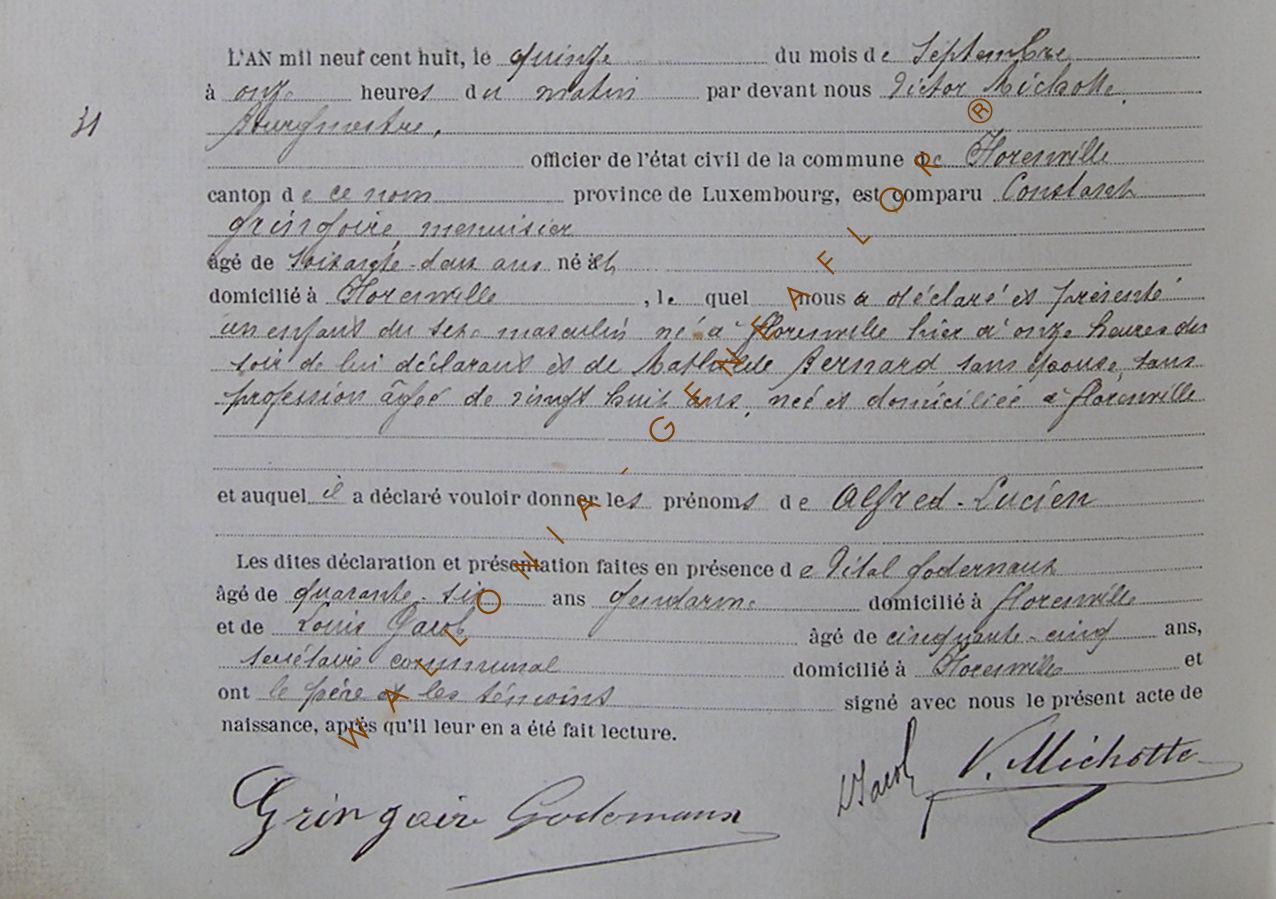 L'AN mil neuf cent huit, le quinze du mois de Septembre
à onze heures du matin par devant nous Victor Michotte,
31
Bourgmestre,
officier de l'état civil de la commune de Florenville
canton de ce nom province de Luxembourg, est comparu Constant
Gringoire menuisier
âgé de soixante-deux ans né et
domicilié à Florenville, lequel nous a déclaré et présenté
un enfant du sexe masculin né à Florenville hier à onze heures du
soir de lui déclarant et de Mathilde Bernard sans épouse, sans
profession âgée de vingt huit ans, née et domiciliée à Florenville
et auquel il a déclaré vouloir donner les prénoms de Alfred-Lucien
Les dites déclaration et présentation faites en présence de Vital Godernaux
âgé de quarante-six ans gendarme domicilié à Florenville
et de Louis Jacob âgé de cinquante-cinq ans,
secrétaire communal domicilié à Florenville et
ont le père et les témoins signé avec nous le présent acte de
naissance, après qu'il leur en a été fait lecture.
Gringoire Godernaux Jacob V. Michotte
WALLONIA-GENEAFLOR®